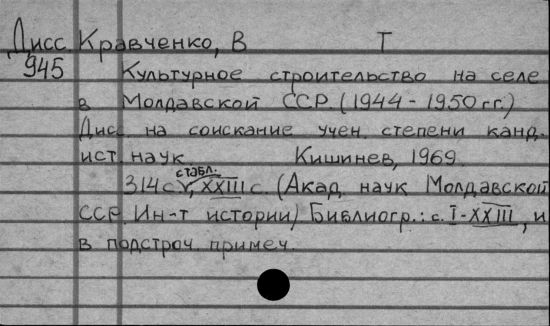 Дисс Кравченко, В Т
945 Культурное строительство на селе
в Молдавской ССР (1944-1950гг.)
Дис. на соискание учен. степени канд.
ист. наук Кишинев, 1969.
314с. с табл., XXIII с. (Акад. наук Молдавской
ССР. Ин-т истории) Библиогр.: с. I-XXIII, и
в подстроч. примеч.